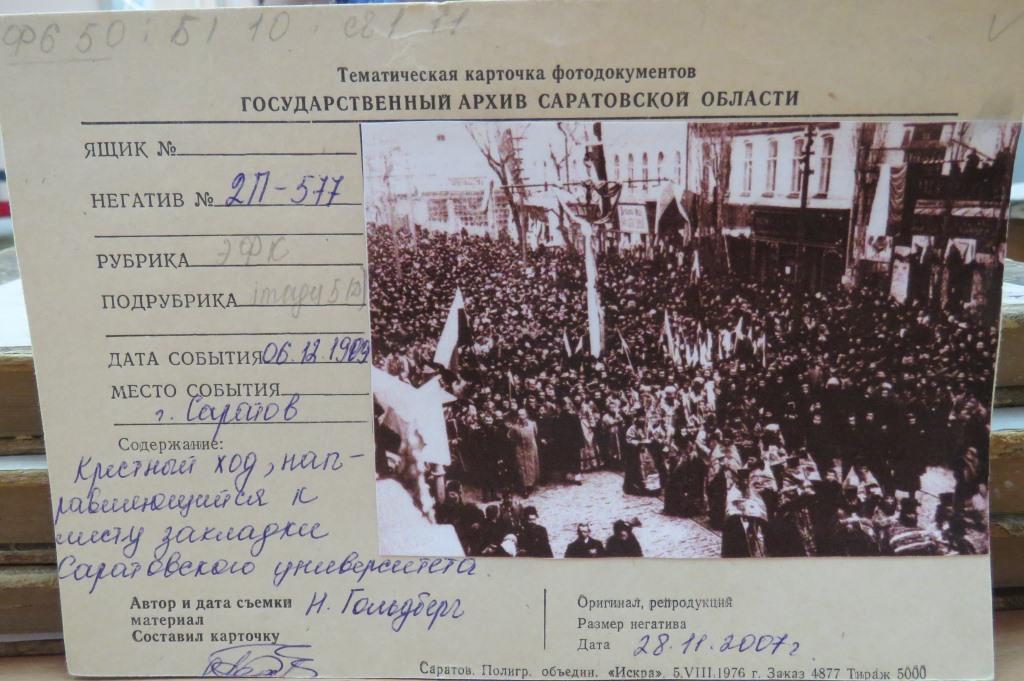 Ф6 50 : Б1 10 . сг1 11
Тематическая карточка фотодокументов
ГОСУДАРСТВЕННЫЙ АРХИВ САРАТОВСКОЙ ОБЛАСТИ
ЯЩИК №
НЕГАТИВ № 2П-577
РУБРИКА ЭФК
ПОДРУБРИКА
ДАТА СОБЫТИЯ 06.12.1909
МЕСТО СОБЫТИЯ
г. Саратов
Содержание:
Крестный ход, нап-
равляющийся к
месту закладки
Саратовского университета.
Автор и дата съемки Н. Гольдберг
материал
Составил карточку
Оригинал, репродукций
Размер негатива
Дата 28.11.2007г
Саратов. Полигр. объедин. «Искра». 5.VIII.1976 г. Заказ 4877 Тираж 5000